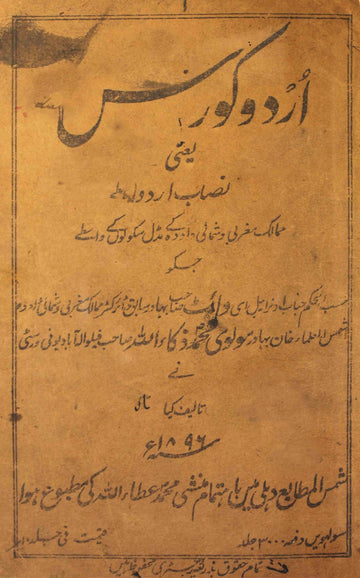 اُردو کورس
یعنی
نصاب اردو
ممالک مغربی و شمالی و اودہ کے مڈل سکولوں کے واسطے
جسکو
حسب الحکم جناب وائٹ صاحب بہادر سابق ڈائرکٹر ممالک مغربی و شمالی و اودہ
شمس العلماء خان بہادر مولوی محمد ذکاء اللہ صاحب فیلو الہ آباد یونیورسٹی
نے
تالیف کیا
سنہ ۱۸۹۶ء
شمس المطابع دہلی میں باہتمام منشی محمد عطاء اللہ کی مطبوع ہوا
سولہویں دفعہ ۳۰۰۰ جلد
قیمت فی جلد
تمام حقوق محفوظ ہیں